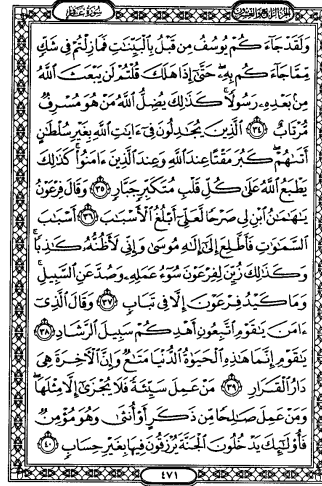 سورة غافر
الجزء الرابع والعشرون
وَلَقَدْ جَاءَكُمْ يُوسُفُ مِن قَبْلُ بِالْبَيِّنَٰتِ فَمَا زِلْتُمْ فِى شَكٍّ
مِّمَّا جَاءَكُم بِهِۦ حَتَّىٰ إِذَا هَلَكَ قُلْتُمْ لَن يَبْعَثَ اللَّهُ
مِنۢ بَعْدِهِۦ رَسُولًا كَذَٰلِكَ يُضِلُّ اللَّهُ مَنْ هُوَ مُسْرِفٌ
مُّرْتَابٌ ٣٤ الَّذِينَ يُجَٰدِلُونَ فِىٓ ءَايَٰتِ اللَّهِ بِغَيْرِ سُلْطَٰنٍ
أَتَىٰهُمْ كَبُرَ مَقْتًا عِندَ اللَّهِ وَعِندَ الَّذِينَ ءَامَنُوا كَذَٰلِكَ
يَطْبَعُ اللَّهُ عَلَىٰ كُلِّ قَلْبِ مُتَكَبِّرٍ جَبَّارٍ ٣٥ وَقَالَ فِرْعَوْنُ
يَٰهَٰمَٰنُ ابْنِ لِى صَرْحًا لَّعَلِّىٓ أَبْلُغُ الْأَسْبَٰبَ ٣٦ أَسْبَٰبَ
السَّمَٰوَٰتِ فَأَطَّلِعَ إِلَىٰٓ إِلَٰهِ مُوسَىٰ وَإِنِّى لَأَظُنُّهُۥ كَٰذِبًا
وَكَذَٰلِكَ زُيِّنَ لِفِرْعَوْنَ سُوٓءُ عَمَلِهِۦ وَصُدَّ عَنِ السَّبِيلِ
وَمَا كَيْدُ فِرْعَوْنَ إِلَّا فِى تَبَابٍ ٣٧ وَقَالَ الَّذِىٓ
ءَامَنَ يَٰقَوْمِ اتَّبِعُونِ أَهْدِكُمْ سَبِيلَ الرَّشَادِ ٣٨
يَٰقَوْمِ إِنَّمَا هَٰذِهِ الْحَيَوٰةُ الدُّنْيَا مَتَٰعٌ وَإِنَّ الْءَاخِرَةَ هِىَ
دَارُ الْقَرَارِ ٣٩ مَنْ عَمِلَ سَيِّئَةً فَلَا يُجْزَىٰٓ إِلَّا مِثْلَهَا
وَمَنْ عَمِلَ صَٰلِحًا مِّن ذَكَرٍ أَوْ أُنثَىٰ وَهُوَ مُؤْمِنٌ
فَأُولَٰٓئِكَ يَدْخُلُونَ الْجَنَّةَ يُرْزَقُونَ فِيهَا بِغَيْرِ حِسَابٍ ٤٠
٤٧١